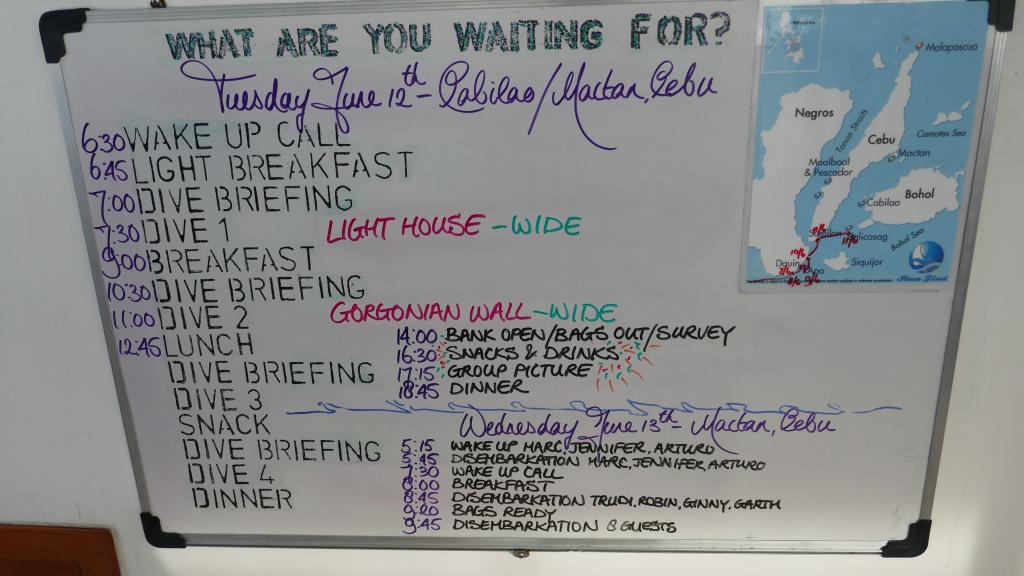 WHAT ARE YOU WAITING FOR?
Tuesday June 12th - Cabilao/Mactan, Cebu
6:30 WAKE UP CALL
6:45 LIGHT BREAKFAST
7:00 DIVE BRIEFING
7:30 DIVE 1 LIGHT HOUSE - WIDE
9:00 BREAKFAST
10:30 DIVE BRIEFING
11:00 DIVE 2 GORGONIAN WALL - WIDE
12:45 LUNCH
DIVE BRIEFING
DIVE 3
SNACK
DIVE BRIEFING
DIVE 4
DINNER
14:00 BANK OPEN/BAGS OUT/SURVEY
16:30 SNACKS & DRINKS
17:15 GROUP PICTURE
18:45 DINNER
Wednesday June 13th - Mactan, Cebu
5:15 WAKE UP MARC, JENNIFER, ARTURO
5:45 DISEMBARKATION MARC, JENNIFER, ARTURO
7:30 WAKE UP CALL
8:00 BREAKFAST
8:45 DISEMBARKATION TRUDI, ROBIN, GINNY, GARTH
9:20 BAGS READY
9:45 DISEMBARKATION 8 GUESTS
Malapascua
Negros
Tanon Straits
Cebu
Camotes Sea
Mactan
Moalboal
& Pescador
Bohol
Cabilao
Balicasag
Bohol Sea
Siquijor